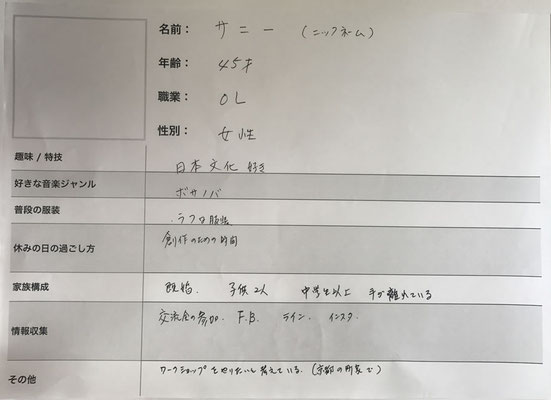 名前： サニー （ニックネーム）
年齢： 45才
職業： OL
性別： 女性
趣味 / 特技 日本文化 好き
好きな音楽ジャンル ボサノバ
普段の服装 ・ラフな服装
休みの日の過ごし方 創作のための時間
家族構成 既婚、 子供2人 中学生以上 手が離れている
情報収集 交流会の参加、 F.B. ライン、 インスタ、
その他 ワークショップをやりたいと考えている。（京都の町家で）